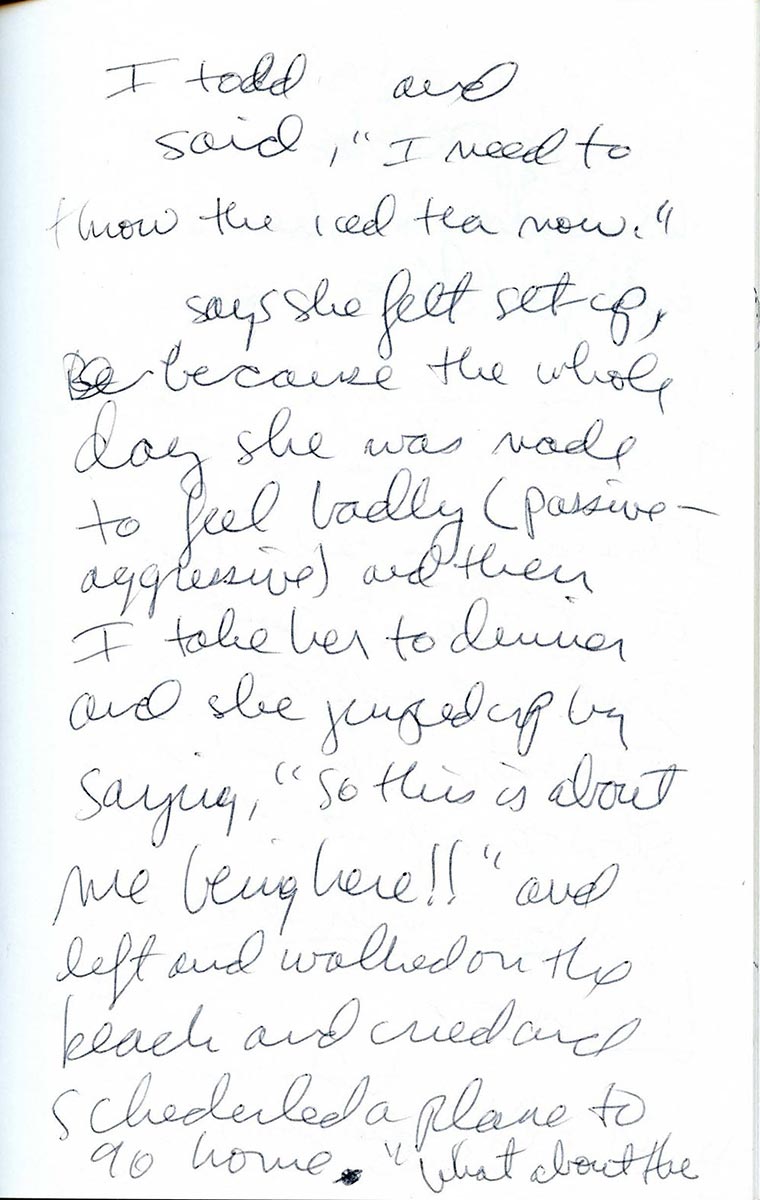 I todd and
said, "I need to
throw the iced tea now."
says she felt set-up,
Be because the whole
day she was made
to feel badly (passive-
aggressive) and then
I take her to dinner
and she jumped up by
saying, "So this is about
me being here!!" and
left and walked on the
beach and cried and
scheduled a plane to
go home. "What about the